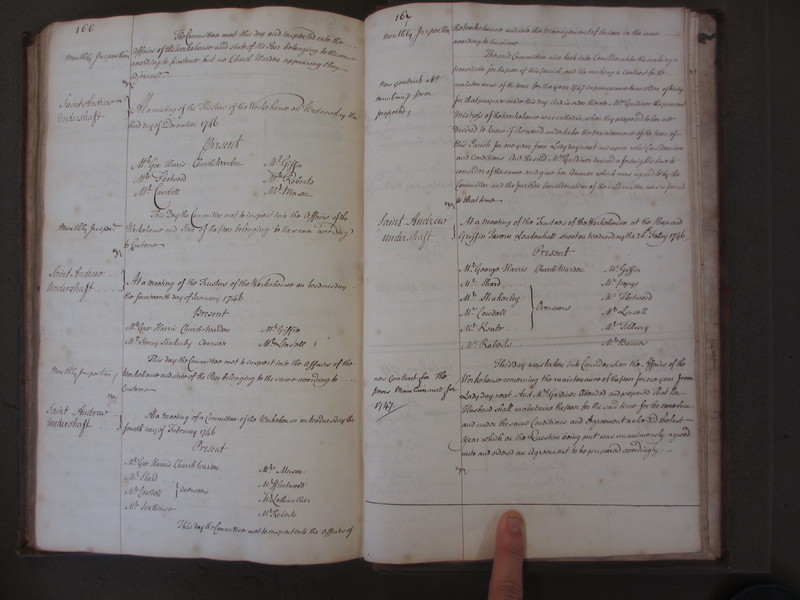 166
The Committee met this day and inspected into the
Monthly Inspection
Affairs of the Workhouse and state of the Poor belonging to the same
according to Custom but no Church Warden appearing they
adjourned
Saint Andrew
Undershaft
At a meeting of the Trustees of the Workhouse on Wednesday the
third day of December 1746
Present
Mr. Geo: Harris Church Warden
Mr. Giffin
Mr. Fleetwood
Mr. Roberts
Mr. Cowdell
Mr. Mason
This day the Committee met to inspect into the Affairs of the
Monthly Inspecn.
Workhouse and State of the Poor belonging to the same according
to Custom
Saint Andrew
Undershaft
At a meeting of the Trustees of the Workhouse on Wednesday
the fourteenth day of January 1746
Present
Mr. Geo: Harris Church Warden
Mr. Giffin
Mr. Henry Shakerley Overseer
Mr.
This day the Committee met to inspect into the Affairs of the
Monthly Inspection
Workhouse and state of the Poor belonging to the same according to
Custom
Saint Andrew
Undershaft
At a meeting of a Committee of the Workhouse on Wednesday the
fourth day of February 1746
Present
Mr. Geo: Harris Church Warden
Mr. Mason
Mr. Shard
Mr. Fleetwood
Mr. Cowdell
Overseers
Mr.
Mr.
Mr. Roberts
This day the Committee met to inspect into the Affairs of
167
Monthly Inspection
the Workhouse and into the management of the poor in the same
according to Custom
The said Committee also took into Consideration the making a
New Contract abt.
maintaing. poor
proposed
provision for the poor of this parish, and the making a Contract for the
maintenance of the poor for the year 1747 in pursuance to an Order of Vestry
for that purpose made this day And in order thereto Mr. Gardiner the present
Master of the Workhouse was called in when they proposed to him and
desired to know if he would undertake the maintenance of the poor of
this Parish for one year from Lady day next and upon what Consideration
and conditions And the said Mr. Gardiner desired a fortnights time to
consider of the same and give his Answer which was agreed to by the
Committee and the further Consideration of this Affair was referred
to that time
Saint Andrew
Undershaft
At a meeting of the Trustees of the Workhouse at the Ship and
Griffin Tavern Leadenhall Street on Wednesday the 25th. Febry 1746
Present
Mr. George Harris Church Warden
Mr. Giffin
Mr. Shard
Mr. Pepys
Mr. Shakerley
Overseers
Mr. Fleetwood
Mr. Cowdell
Mr.
Mr.
Mr. Tilbury
Mr. Roberts
Mr.
This day was taken into Consideration the Affairs of the
New Contract for the
Poors Maintenance for
1747
Workhouse concerning the maintenance of the poor for one year from
Lady day next And Mr. Gardiner attended and proposed that her
Husband shall maintaine the poor for the said time for the same Sum
and under the same Conditions and Agreement as he did the last
Year which on the Question being put was unanimously agreed
unto and ordered an Agreement to be prepared accordingly